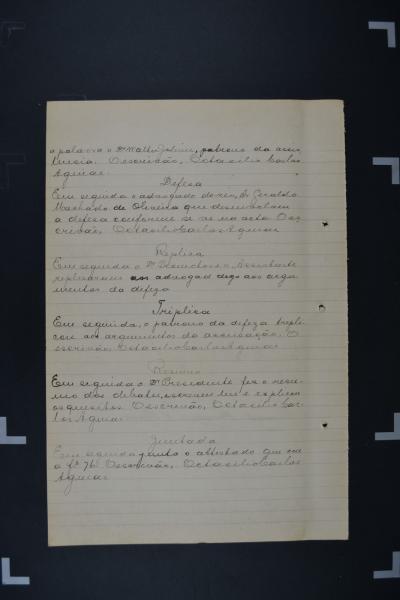 a palavra o Dr Walter, patrono da accu
O escrivão, Octacilio Carlos
Aguiar.
Defesa
Em seguida o advogado do reu, Dr Geraldo
Machado de Oliveira que desenvolveu
a defesa conforme se ve na acta. O es-
crivão, Octacilio Carlos Aguiar
Replica
Em seguida o Dr e Assistente
replicaram aos advogad digo aos argu
mentos da defeza
Triplica
Em seguida, o patrono da defeza trepli
cou aos argumentos da accusação. O
escrivão, Octacilio Carlos Aguiar
Resumo
Em seguida o Dr Presidente fez o resu
mo dos debates, escreveu leu e explicou
os quesitos. O escrivão, Octacilio Car
los Aguiar
Juntada
Em seguida junto o attestado que
a fs 76. O escrivão, Octacilio Carlos
Aguiar